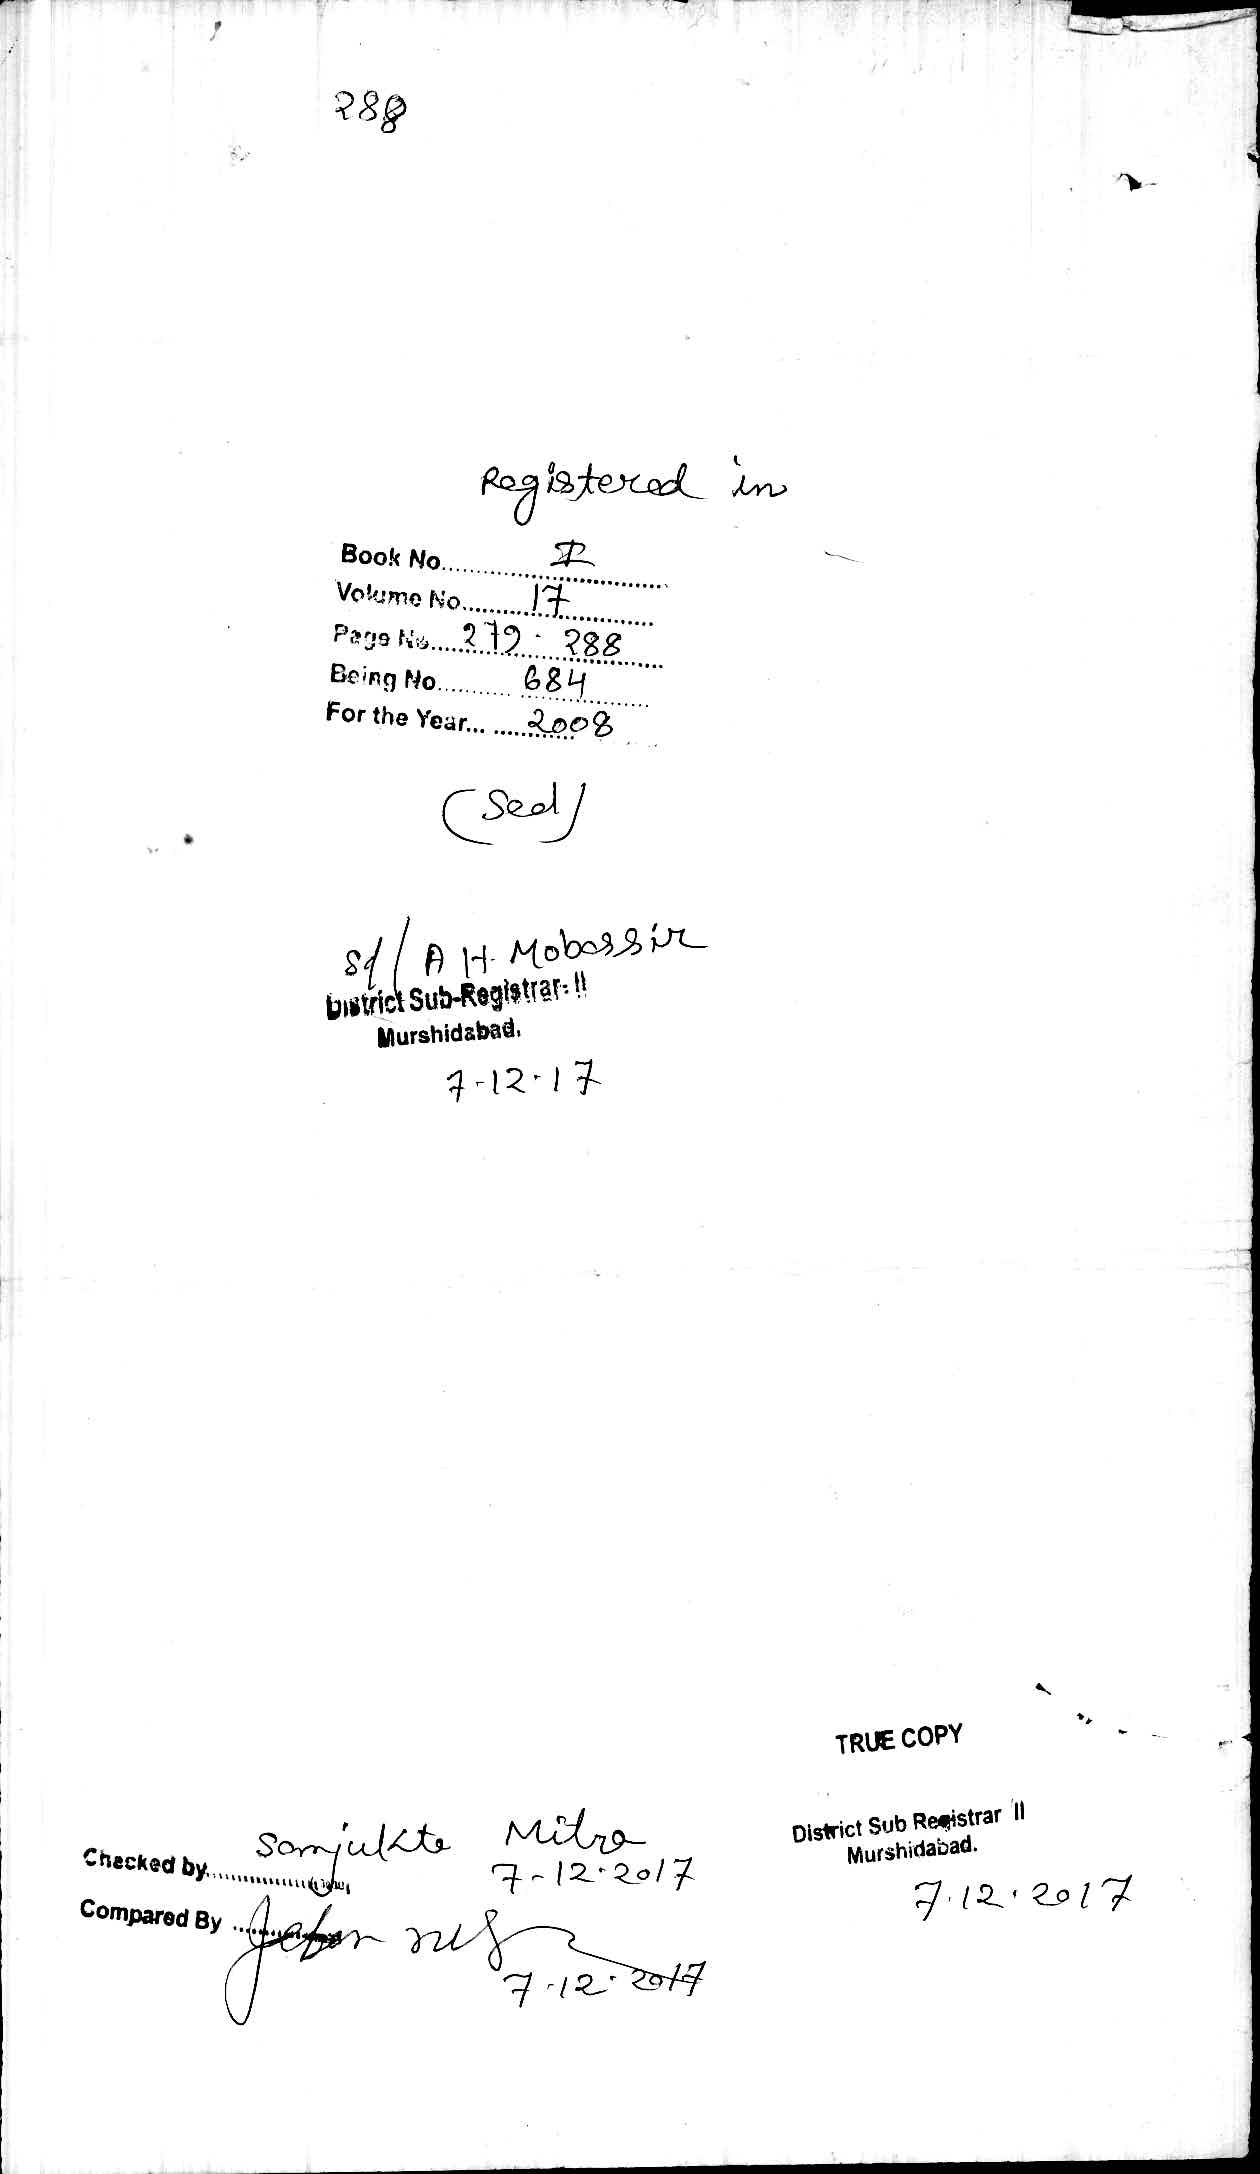 288
Registered in
Book No.......... I
Volume No.......... 17
Page No..... 279 - 288
Being No.......... 684
For the Year... ...... 2008
(Seal)
Sd/ A H. Mobassir
District Sub-Registrar- II
Murshidabad.
7-12-17
TRUE COPY
District Sub Registrar II
Murshidabad.
7.12.2017
Checked by.......... Samjukta Mitra
7-12-2017
Compared By ..........
7-12-2017